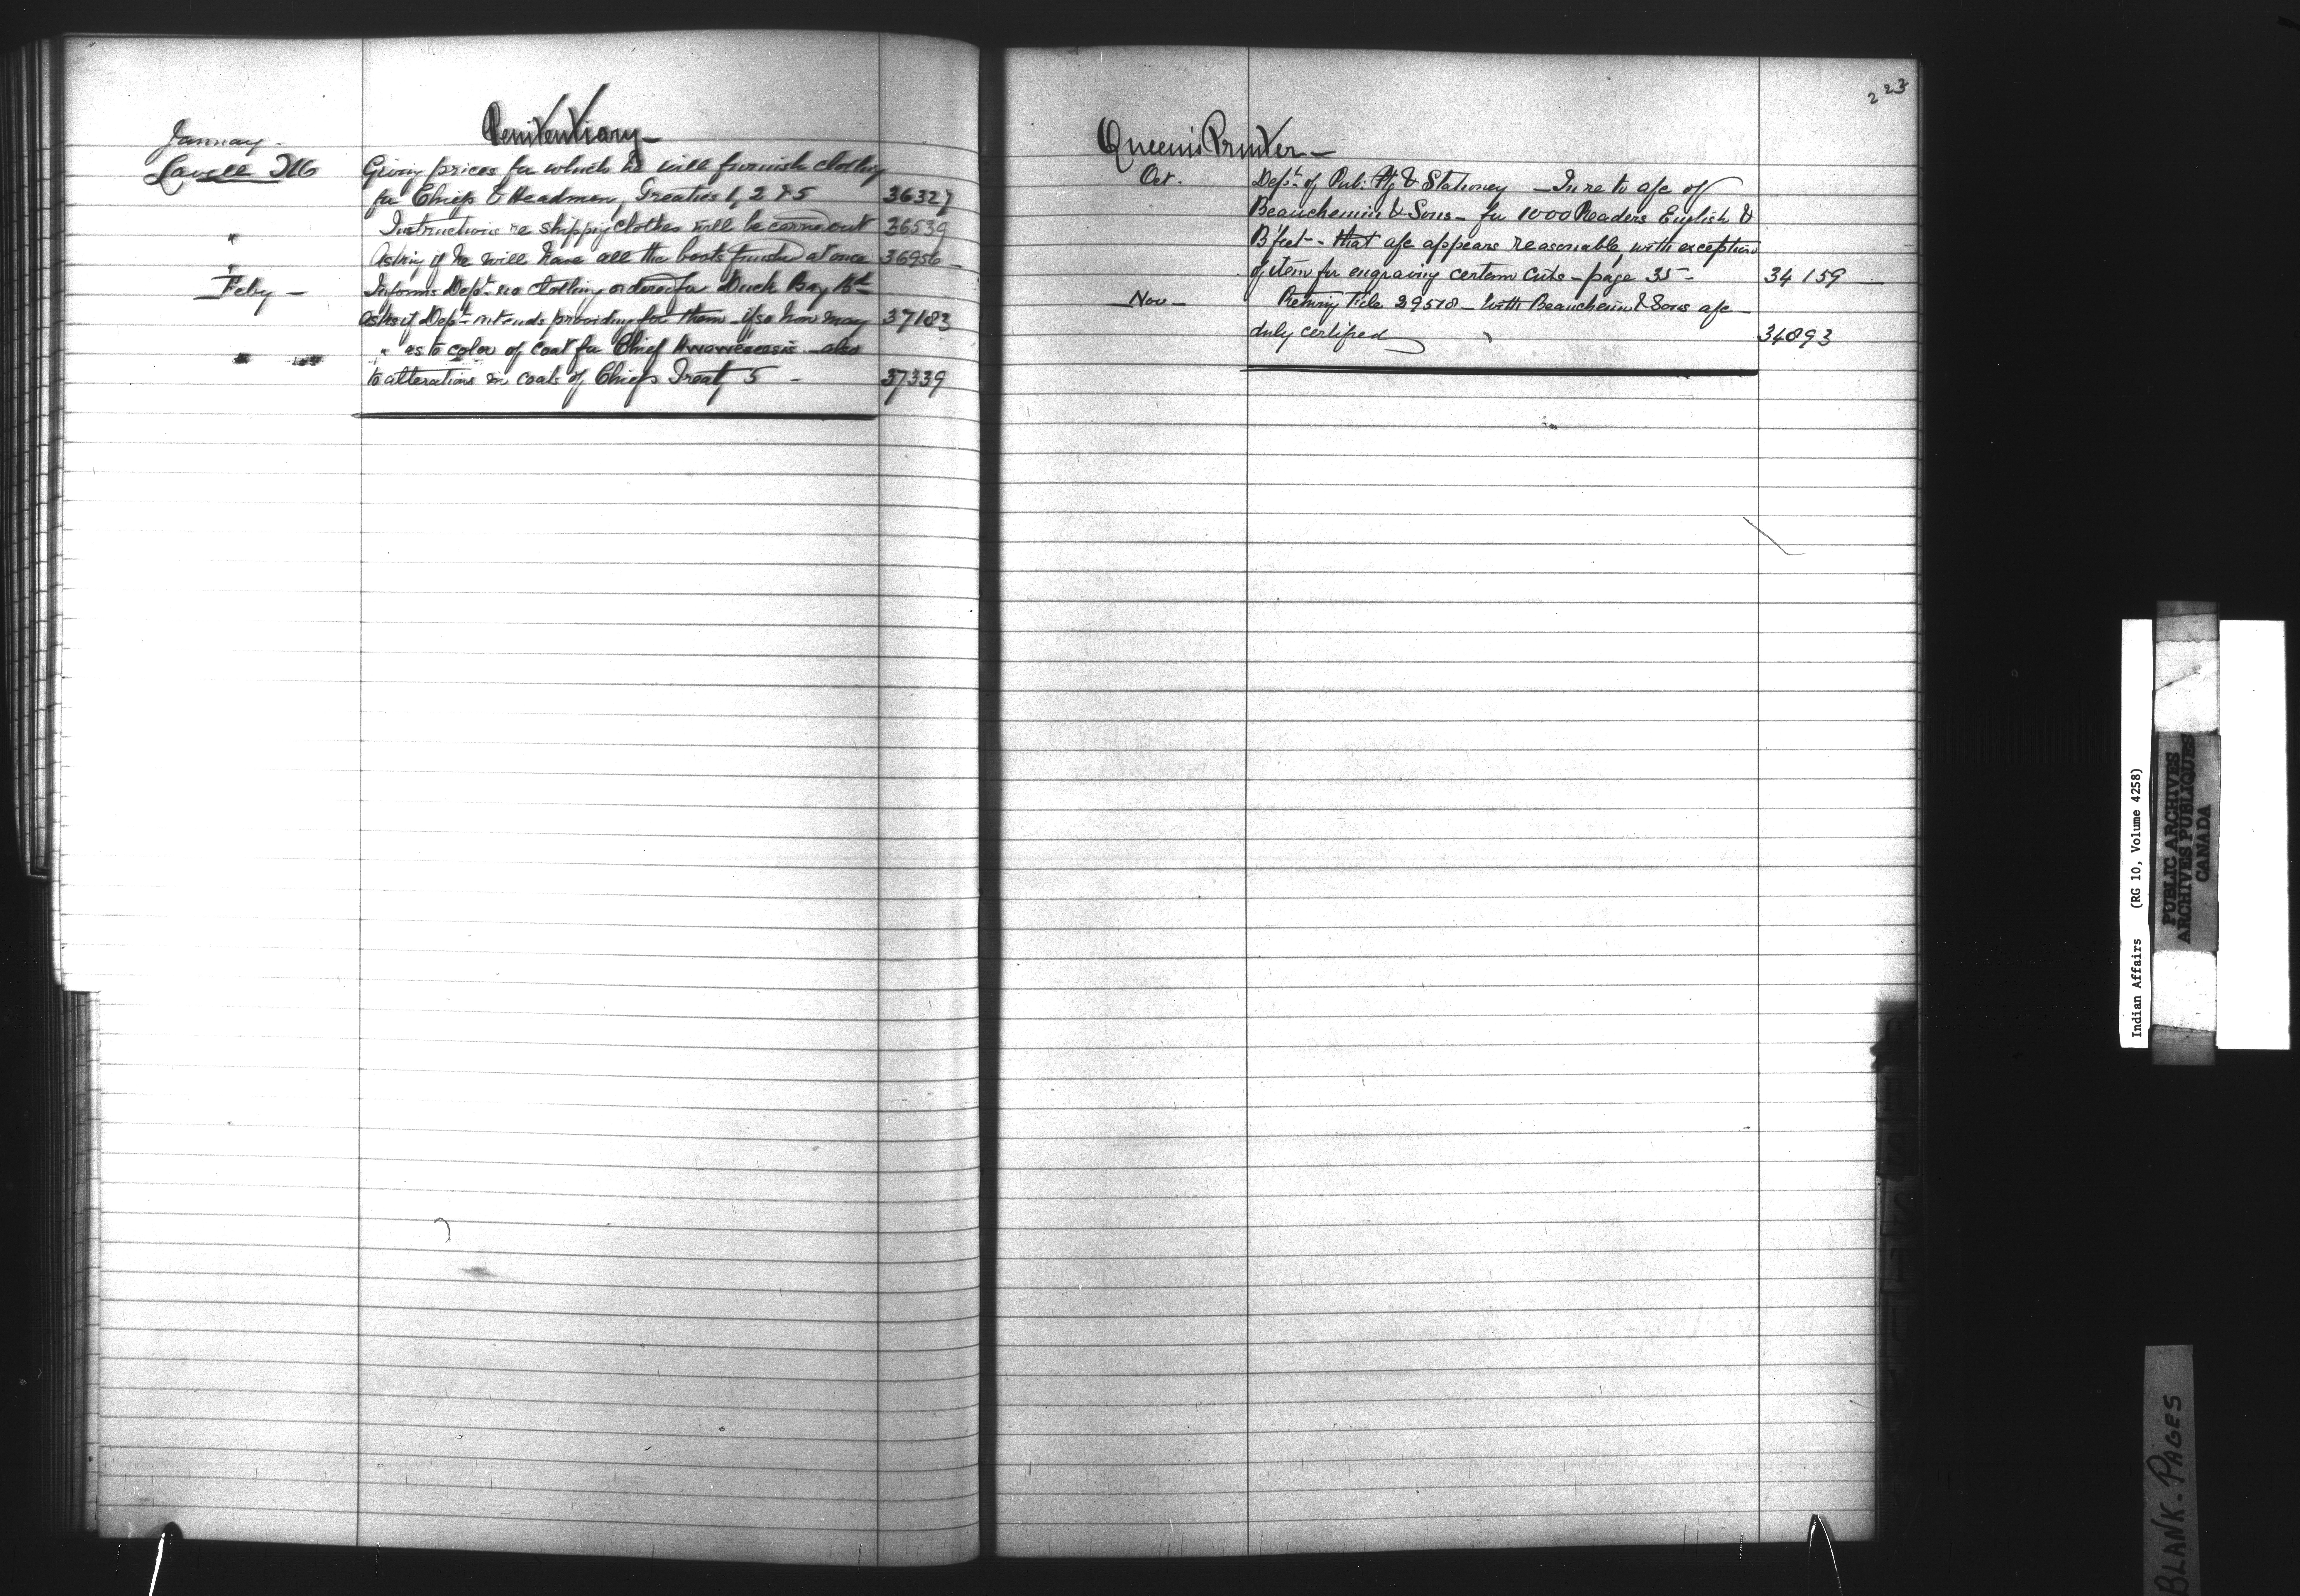 Penitentiary -
January -
Lavell M
Giving prices for which he will furnish clothing
for Chiefs & Headmen, Treaties 1, 2 & 5 36327
" Instructions re shipping clothes will be carried out 36539
" Asking if he will have all the boots finished at once 36956
Feby - Informs Dept. no clothing ordered for Duck Bay
asks if Dept. intends providing for them - if so how many 37183
" " " as to color of coat for Chief - also
to alterations in coats of Chiefs Treaty 5 - 37339
223
Queen's Printer -
Oct. Dept. of Pub. Ptg & Stationery - In re to a/c of
Beauchemin & Sons - for 1000 Readers English &
B'feet - that a/c appears reasonable, with exception
of item for engraving certain cuts - page 35 - 34159
Nov - Returning File 29518 - with Beauchemin & Sons a/c -
duly certified 34893
Indian Affairs (RG 10, Volume 4258)
PUBLIC ARCHIVES
ARCHIVES PUBLIQUES
CANADA
BLANK-PAGES